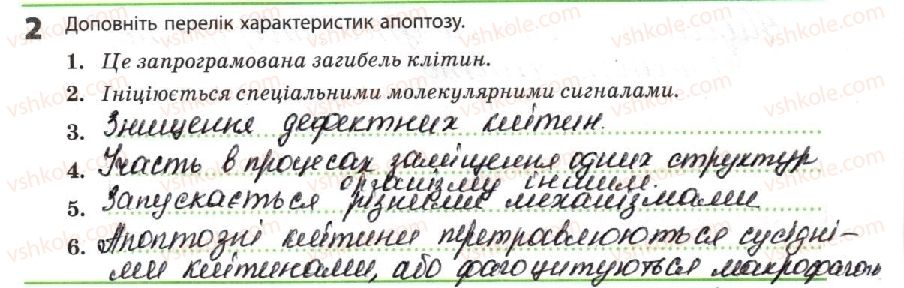 2 Доповніть перелік характеристик апоптозу.
1. Це запрограмована загибель клітин.
2. Ініціюється спеціальними молекулярними сигналами.
3. Знищення дефектних клітин.
4. Участь в процесах заміщення одних структур
організму іншими.
5. Запускається різними механізмами
6. Апоптозні клітини перетравлюються сусідні-
ми клітинами, або фагоцитуються макрофагами